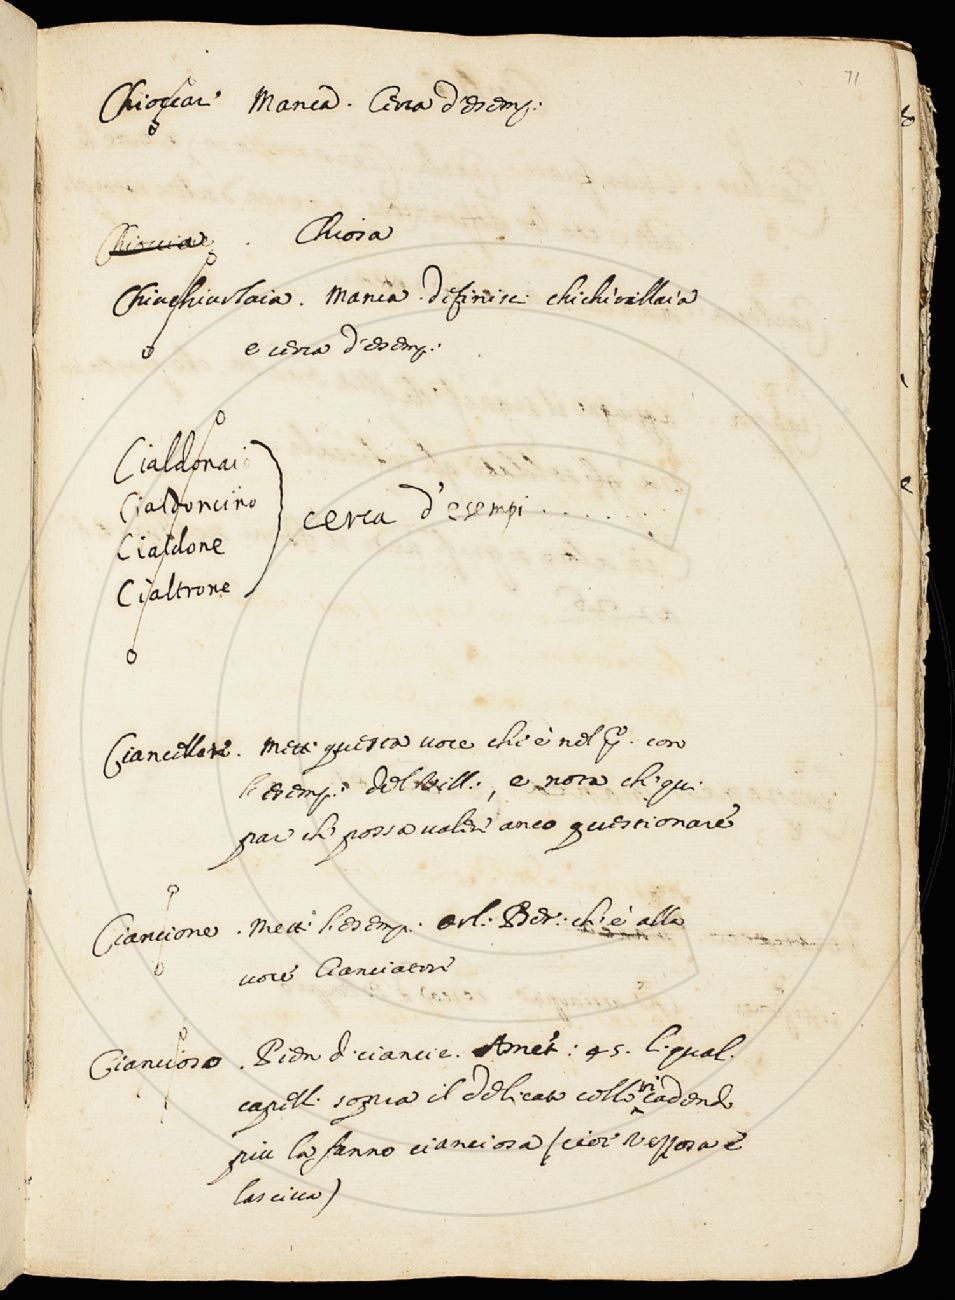 71
Chioccar Manca. Cerca d'esemp:
Chiocciare . Chiosa
Chiuchiurlaia. Manca definisc: chichirillaia
e cerca d'esemp:
Cialdonaio
Cialdoncino
Cialdone cerca d'esempi . . . . . .
Cialtrone
Ciancellare. Mett: questa voce ch'è nel con
l'esemp: del Vill:, e nota ch: qui
par ch: possa valer anco questionare
Ciancione. Mett: l'esemp. Orl: Ber: ch: è alla
voce Cianciatore
Ciancioso. Pien di ciancie. Amet: 45. l: qual:
capell: sopra il delicato collo ricadendo
piu la fanno cianciosa (cioè vezzosa e
lasciva)